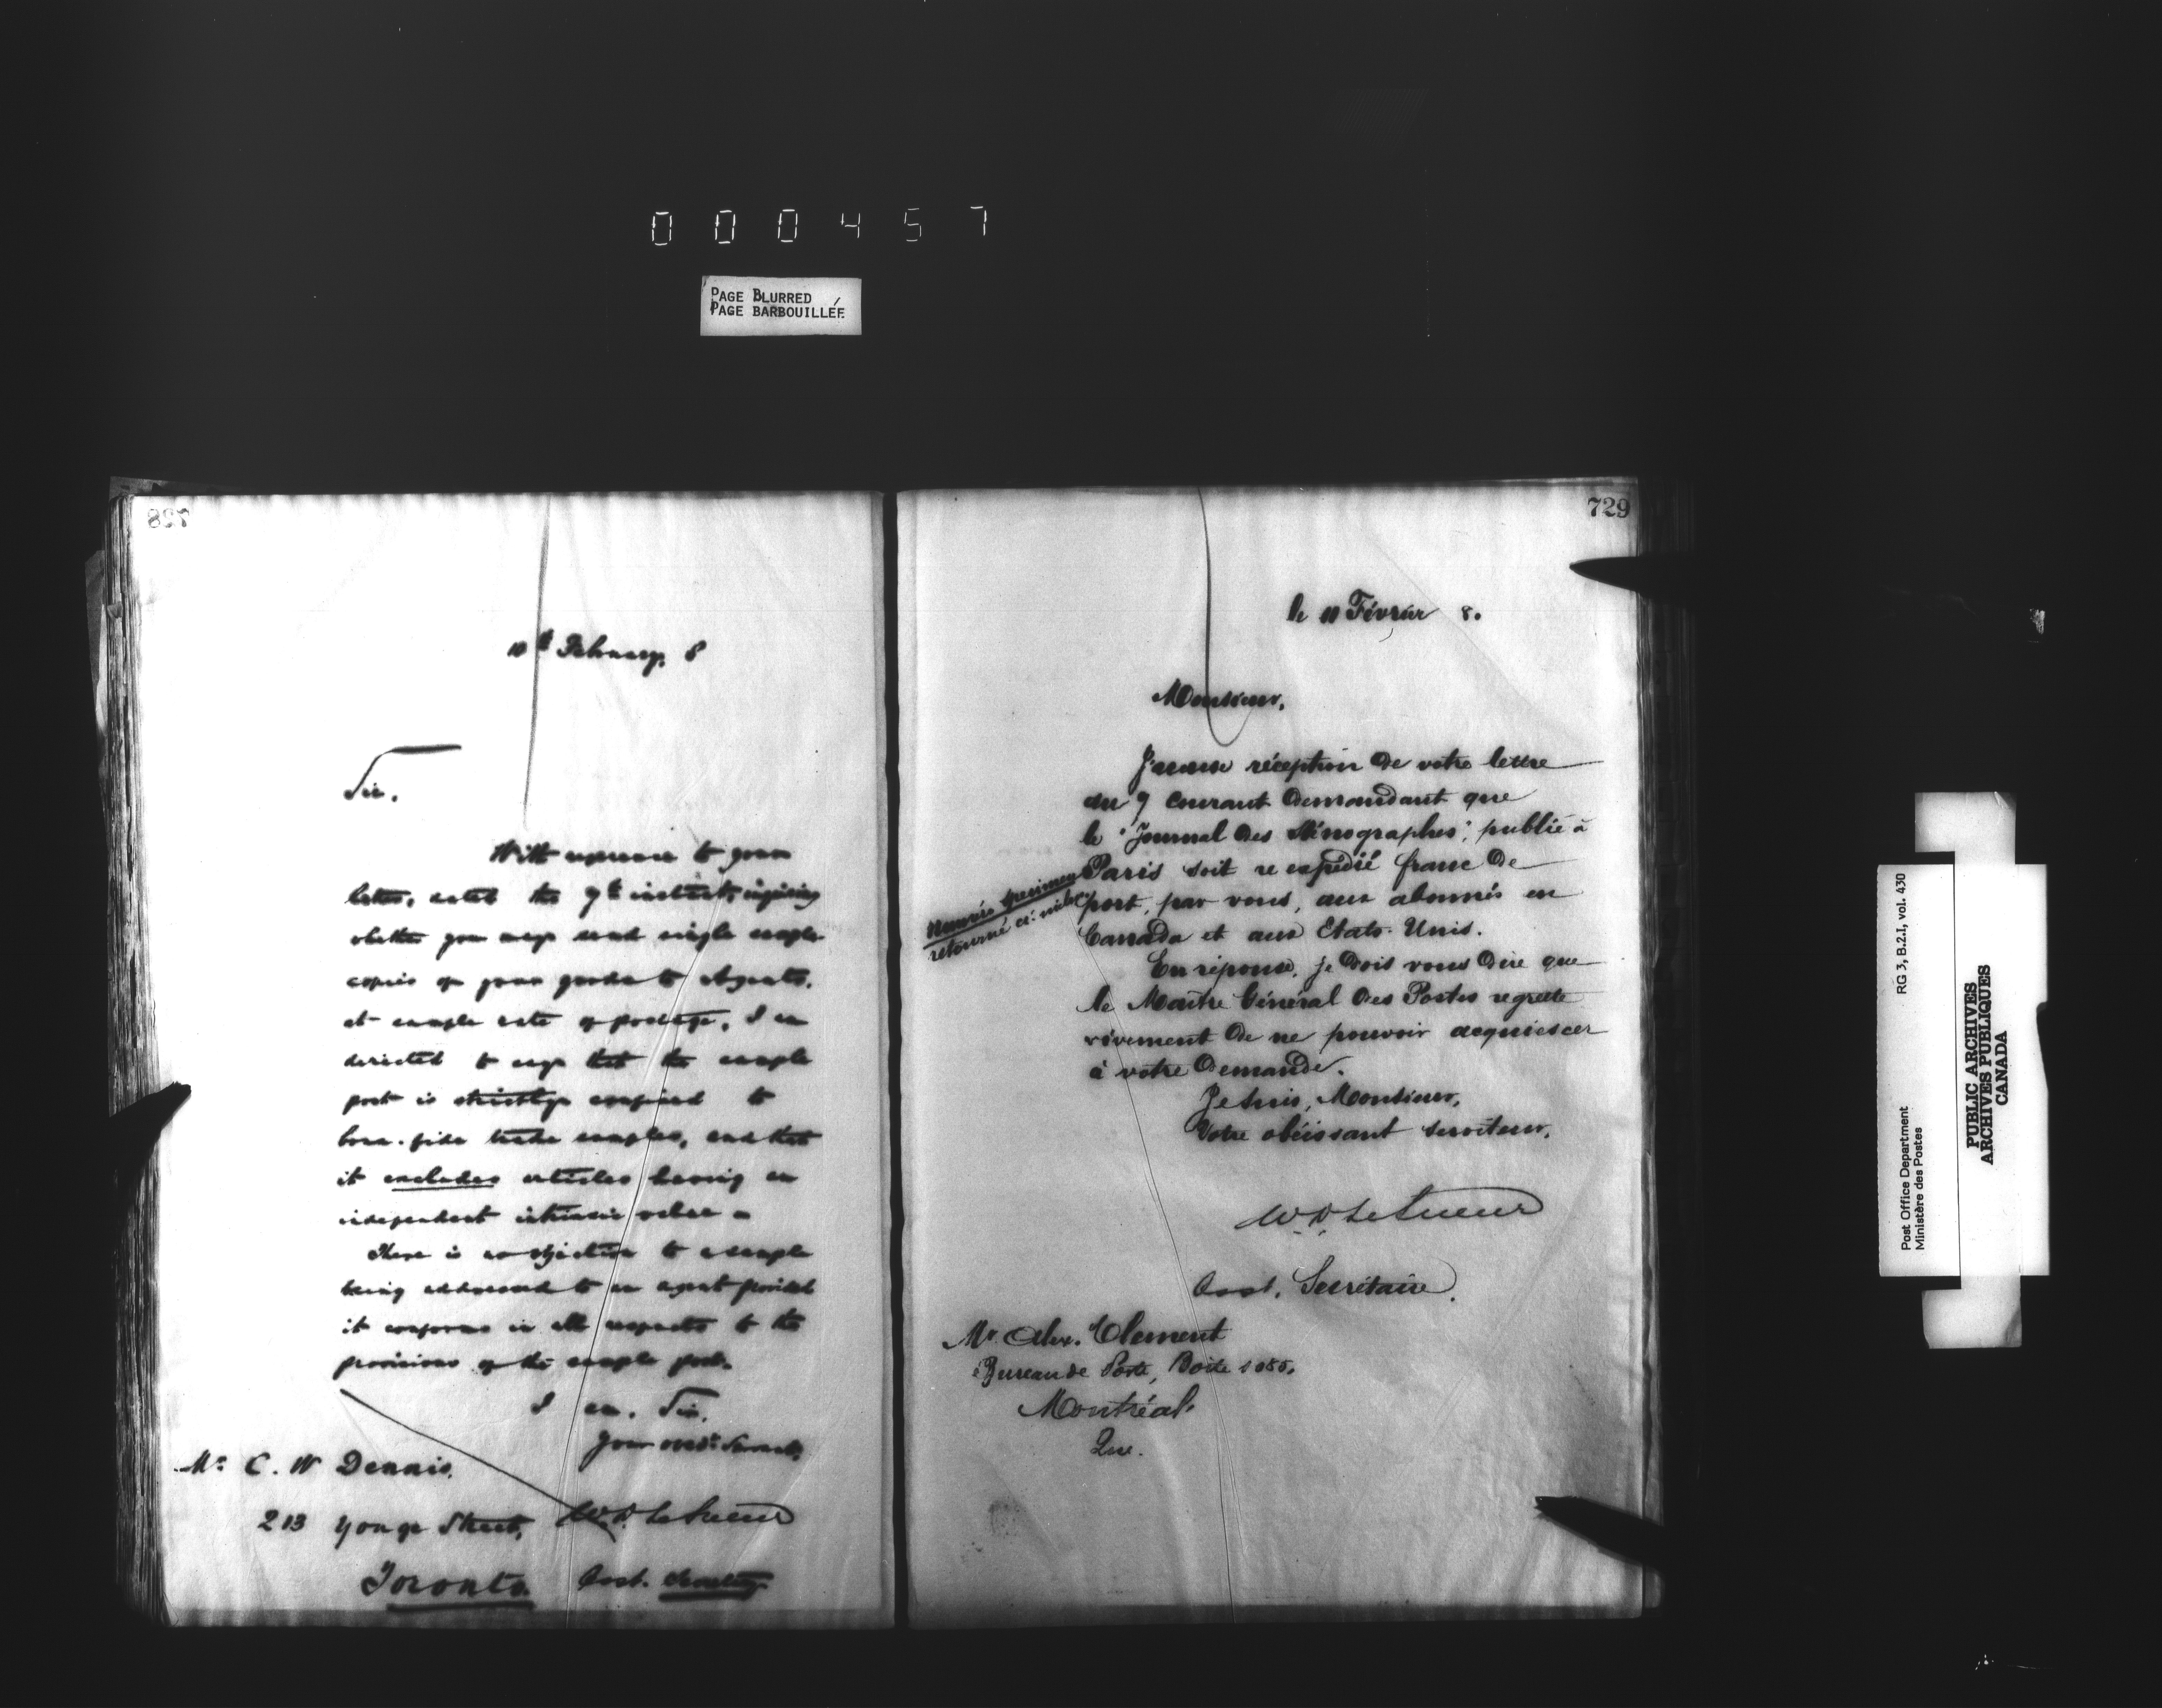 000457
PAGE BLURRED
PAGE BARBOUILLÉE
728
10th February, 8
Sir,
With reference to your
letter, dated the 9th instant, inquiring
whether you may send single sample
copies of your goods to Agents,
at sample rate of postage, I am
directed to say that the sample
post is strictly confined to
bona-fide trade samples, and that
it excludes articles having an
independent intrinsic value -
There is no objection to a sample
being addressed to an agent provided
it conforms in all respects to the
provisions of the sample post.
I am, Sir,
Your obedt. Servant,
W. D. LeSueur
Asst. Secretary
Mr. C. W Dennis,
213 Yonge Street,
Toronto.
729
le 10 Février 8.
Monsieur,
J'accuse réception de votre lettre
du 9 courant demandant que
le "Journal des Sténographes", publié à
Paris soit re expédié franc de
port, par vous, aux abonnés en
Canada et aux Etats-Unis.
Numéro specimen
retourné ci-inclus
En réponse, je dois vous dire que
le Maître Général des Postes regrette
vivement de ne pouvoir acquiescer
à votre demande.
Je suis, Monsieur,
Votre obéissant serviteur,
W. D. LeSueur
Asst. Secrétaire.
Mr. Alex. Clement
Bureau de Poste, Boite 1085,
Montréal,
Que.
Post Office Department
Ministère des Postes
RG 3, B.2.I, vol. 430
PUBLIC ARCHIVES
ARCHIVES PUBLIQUES
CANADA